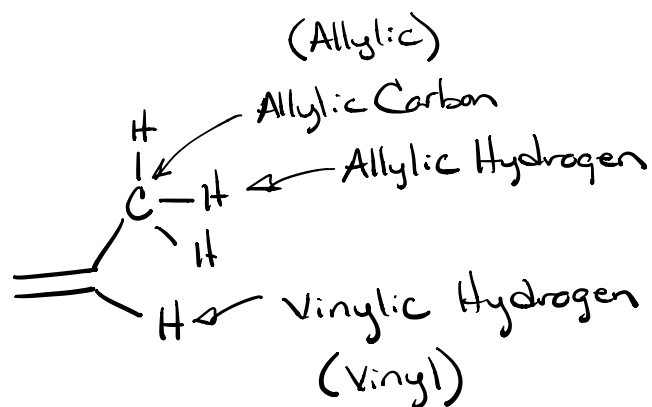 (Allylic)
Allylic Carbon
H
Allylic Hydrogen
C H
H
H Vinylic Hydrogen
(Vinyl)